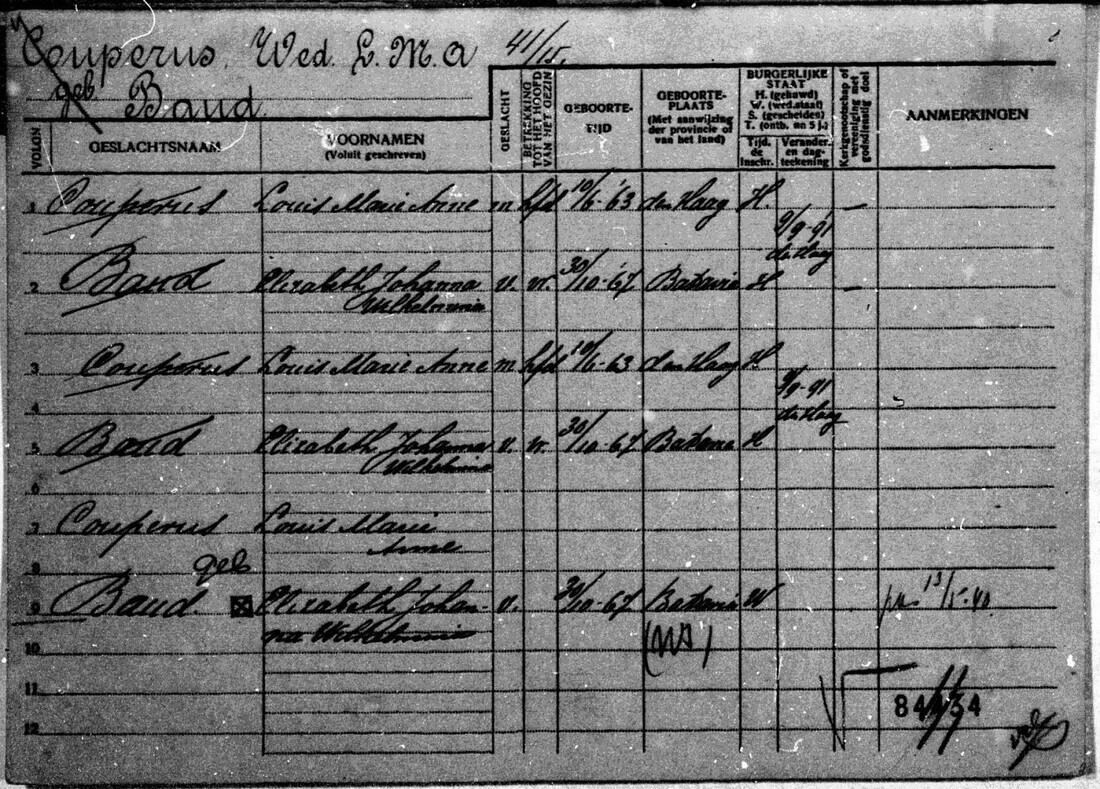 Couperus. Wed. L. M. A 41/15.
geb Baud.
VOLGN. GESLACHTSNAAM VOORNAMEN (Voluit geschreven) GESLACHT BETREKKING TOT HET HOOFD VAN HET GEZIN GEBOORTE-TIJD GEBOORTE-PLAATS (Met aanwijzing der provincie of van het land) BURGERLIJKE STAAT H. (gehuwd) W. (wed.staat) S. (gescheiden) T. (ontb. na 5 j.) Tijd. de Inschr. Verander. en dag-teekening Kerkgenootschap of vereeniging met godsdienstig doel AANMERKINGEN
1 Couperus Louis Marie Anne m hfd 10/6-'63 den Haag H —
9/9-91
den Haag
2 Baud Elizabeth Johanna v. vr. 30/10-'67 Batavia H —
Wilhelmina
3 Couperus Louis Marie Anne m hfd 10/6-63 den Haag H
9/9-91
4 den Haag
5 Baud Elizabeth Johanna v. vr. 30/10-67 Batavia H
Wilhelmina
6
7 Couperus Louis Marie
Anne
8 geb
9 Baud Elizabeth Johan- v. 30/10-67 Batavia W 13/5-40
na Wilhelmina
10
11
84434
12